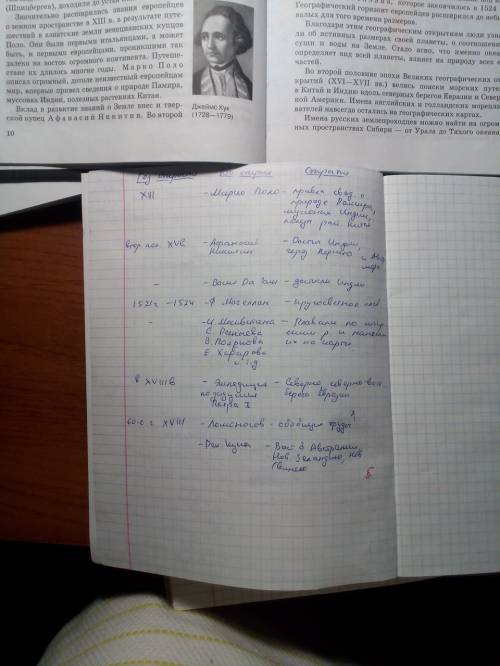 (Шпицберген), доходили до устья
Значительно расширились знания европейцев
о южном пространстве в XIII в. в результате путе-
шествий в азиатские земли венецианских купцов
Поло. Они были первыми итальянцами, а может
быть, и первыми европейцами, проникшими так
далеко на восток огромного континента. Путеше-
ствие их длилось многие годы. Марко Поло
описал огромный, доселе неизвестный европейцам
мир, впервые привёл сведения о природе Памира,
муссонах Индии, полезных растениях Китая.
Вклад в развитие знаний о Земле внёс и твер-
ской купец Афанасий Никитин. Во второй
10
Джеймс Кук
(1728—1779)
которое закончилось в 1524
Географический горизонт европейцев расширился до небы-
валых для того времени размеров.
Благодаря этим географическим открытиям люди узна-
ли об истинных размерах своей планеты, о соотношении
суши и воды на Земле. Стало ясно, что именно океан
определяет вид всей планеты, влияет на природу всех её
частей.
Во второй половине эпохи Великих географических от-
крытий (XVI—XVII вв.) велись поиски морских путей
в Китай и Индию вдоль северных берегов Евразии и Север-
ной Америки. Имена английских и голландских морепла-
вателей навсегда остались на географических картах.
Имена русских землепроходцев можно найти на огром-
ных пространствах Сибири — от Урала до Тихого океана.
Год открытия Открыли
XIII - Марко Поло - привел свед. о
природе Памира,
муссонах Индии,
Китая
втор пол. XVв - Афанасий
Никитин
- - Васко Да Гама - достиг Индии
1521г - 1524 - Ф. Магеллан - кругосветное
- - И. Москвитина
С. Дежнева
В. Пояркова
Е. Хабарова
и т.д.
- Плавали по
р. и нанесли
их на карты
в XVIII в - Экпедиция
по задумке
Петра I
- Северно, северно вос
берега Евразии
60-е г XVIII - Ломоносов - обобщил труды
- Дж Кука - Вост. б Австралии,
Нов Зеландию, Нов
Гвинею
5